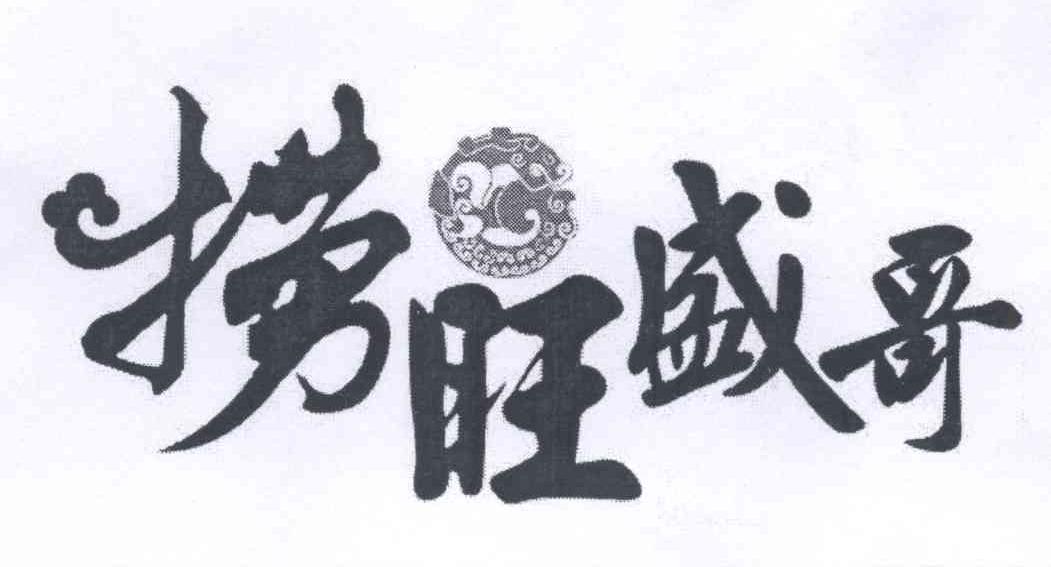 捞旺盛哥